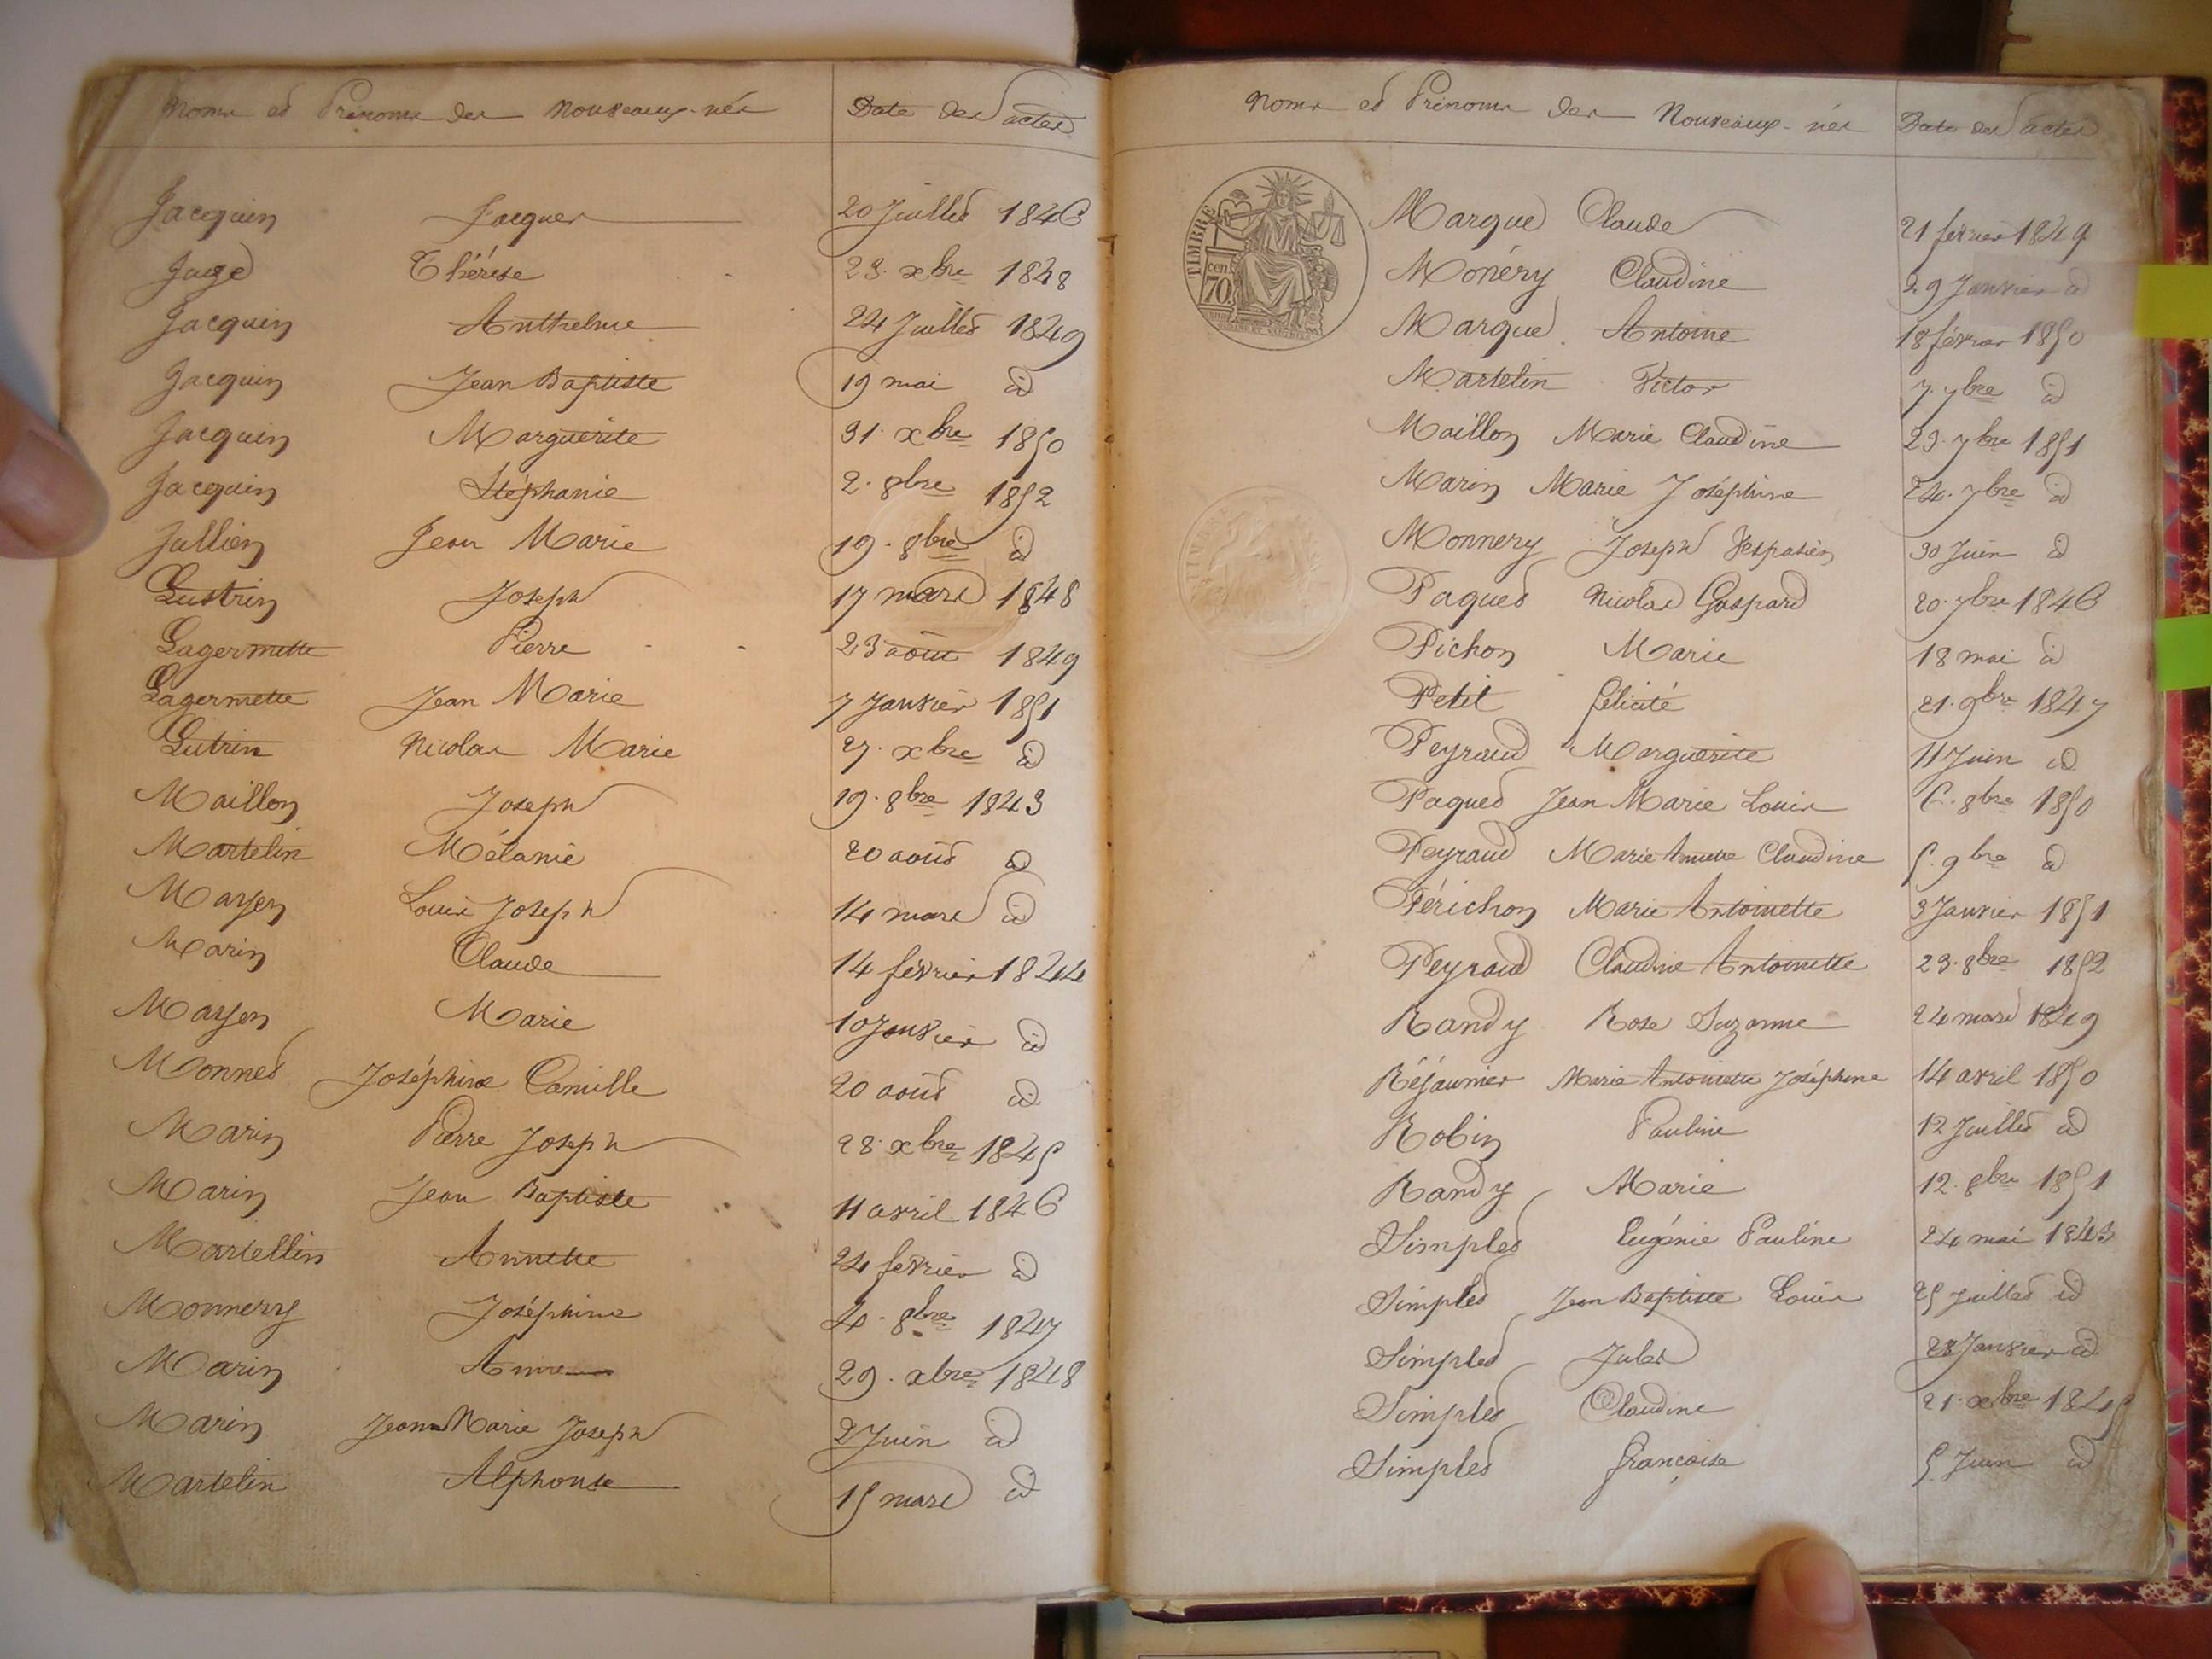 Noms et Prénoms des Nouveaux-nés Date des actes
Jacquin Jacques 20 Juillet 1846
Jugé Thérèse 23 xbre 1848
Jacquin Anthelme 24 Juillet 1849
Jacquin Jean Baptiste 19 mai id
Jacquin Marguerite 31 xbre 1850
Jacquin Stéphanie 2. 8bre 1852
Jullien Jean Marie 19. 8bre id
Lustrin Joseph 17 mars 1848
Lagermette Pierre 23 août 1849
Lagermette Jean Marie 7 Janvier 1851
Lutrin Nicolas Marie 27. xbre id
Maillon Joseph 19. 8bre 1843
Martelin Mélanie 20 août id
Mayen Louis Joseph 14 mars id
Marin Claude 14 février 1844
Mayen Marie 10 Janvier id
Monnet Joséphine Camille 20 août id
Marin Pierre Joseph 28. xbre 1845
Marin Jean Baptiste 11 avril 1846
Martellin Annette 24 février id
Monnery Joséphine 4. 8bre 1847
Marin Anne 29. xbre 1848
Marin Jean Marie Joseph 2 Juin id
Martelin Alphonse 15 mars id
Noms et Prénoms des Nouveaux-nés Date des actes
TIMBRE
70 cen.
Marque Claude 21 février 1849
Monéry Claudine 29 Janvier id
Marque Antoine 18 février 1850
Martelin Victor 7. 7bre id
Maillon Marie Claudine 23. 7bre 1851
Marin Marie Joséphine 24. 7bre id
Monnery Joseph Vespasien 30 Juin id
Paquet Nicolas Gaspard 20. 7bre 1846
Pichon Marie 18 mai id
Petit Félicité 21. 9bre 1847
Peyraud Marguerite 11 Juin id
Paquet Jean Marie Louis 6. 8bre 1850
Peyraud Marie Annette Claudine 5. 9bre id
Périchon Marie Antoinette 3 Janvier 1851
Peyraud Claudine Antoinette 23. 8bre 1852
Randy Rose Suzanne 24 mars 1849
Réjaunier Marie Antoinette Joséphine 14 avril 1850
Robin Pauline 12 Juillet id
Randy Marie 12. 8bre 1851
Simplet Eugénie Pauline 24 mai 1843
Simplet Jean Baptiste Louis 25 Juillet id
Simplet Jules 28 Janvier id
Simplet Claudine 21. xbre
Simplet Françoise 5 Juin id